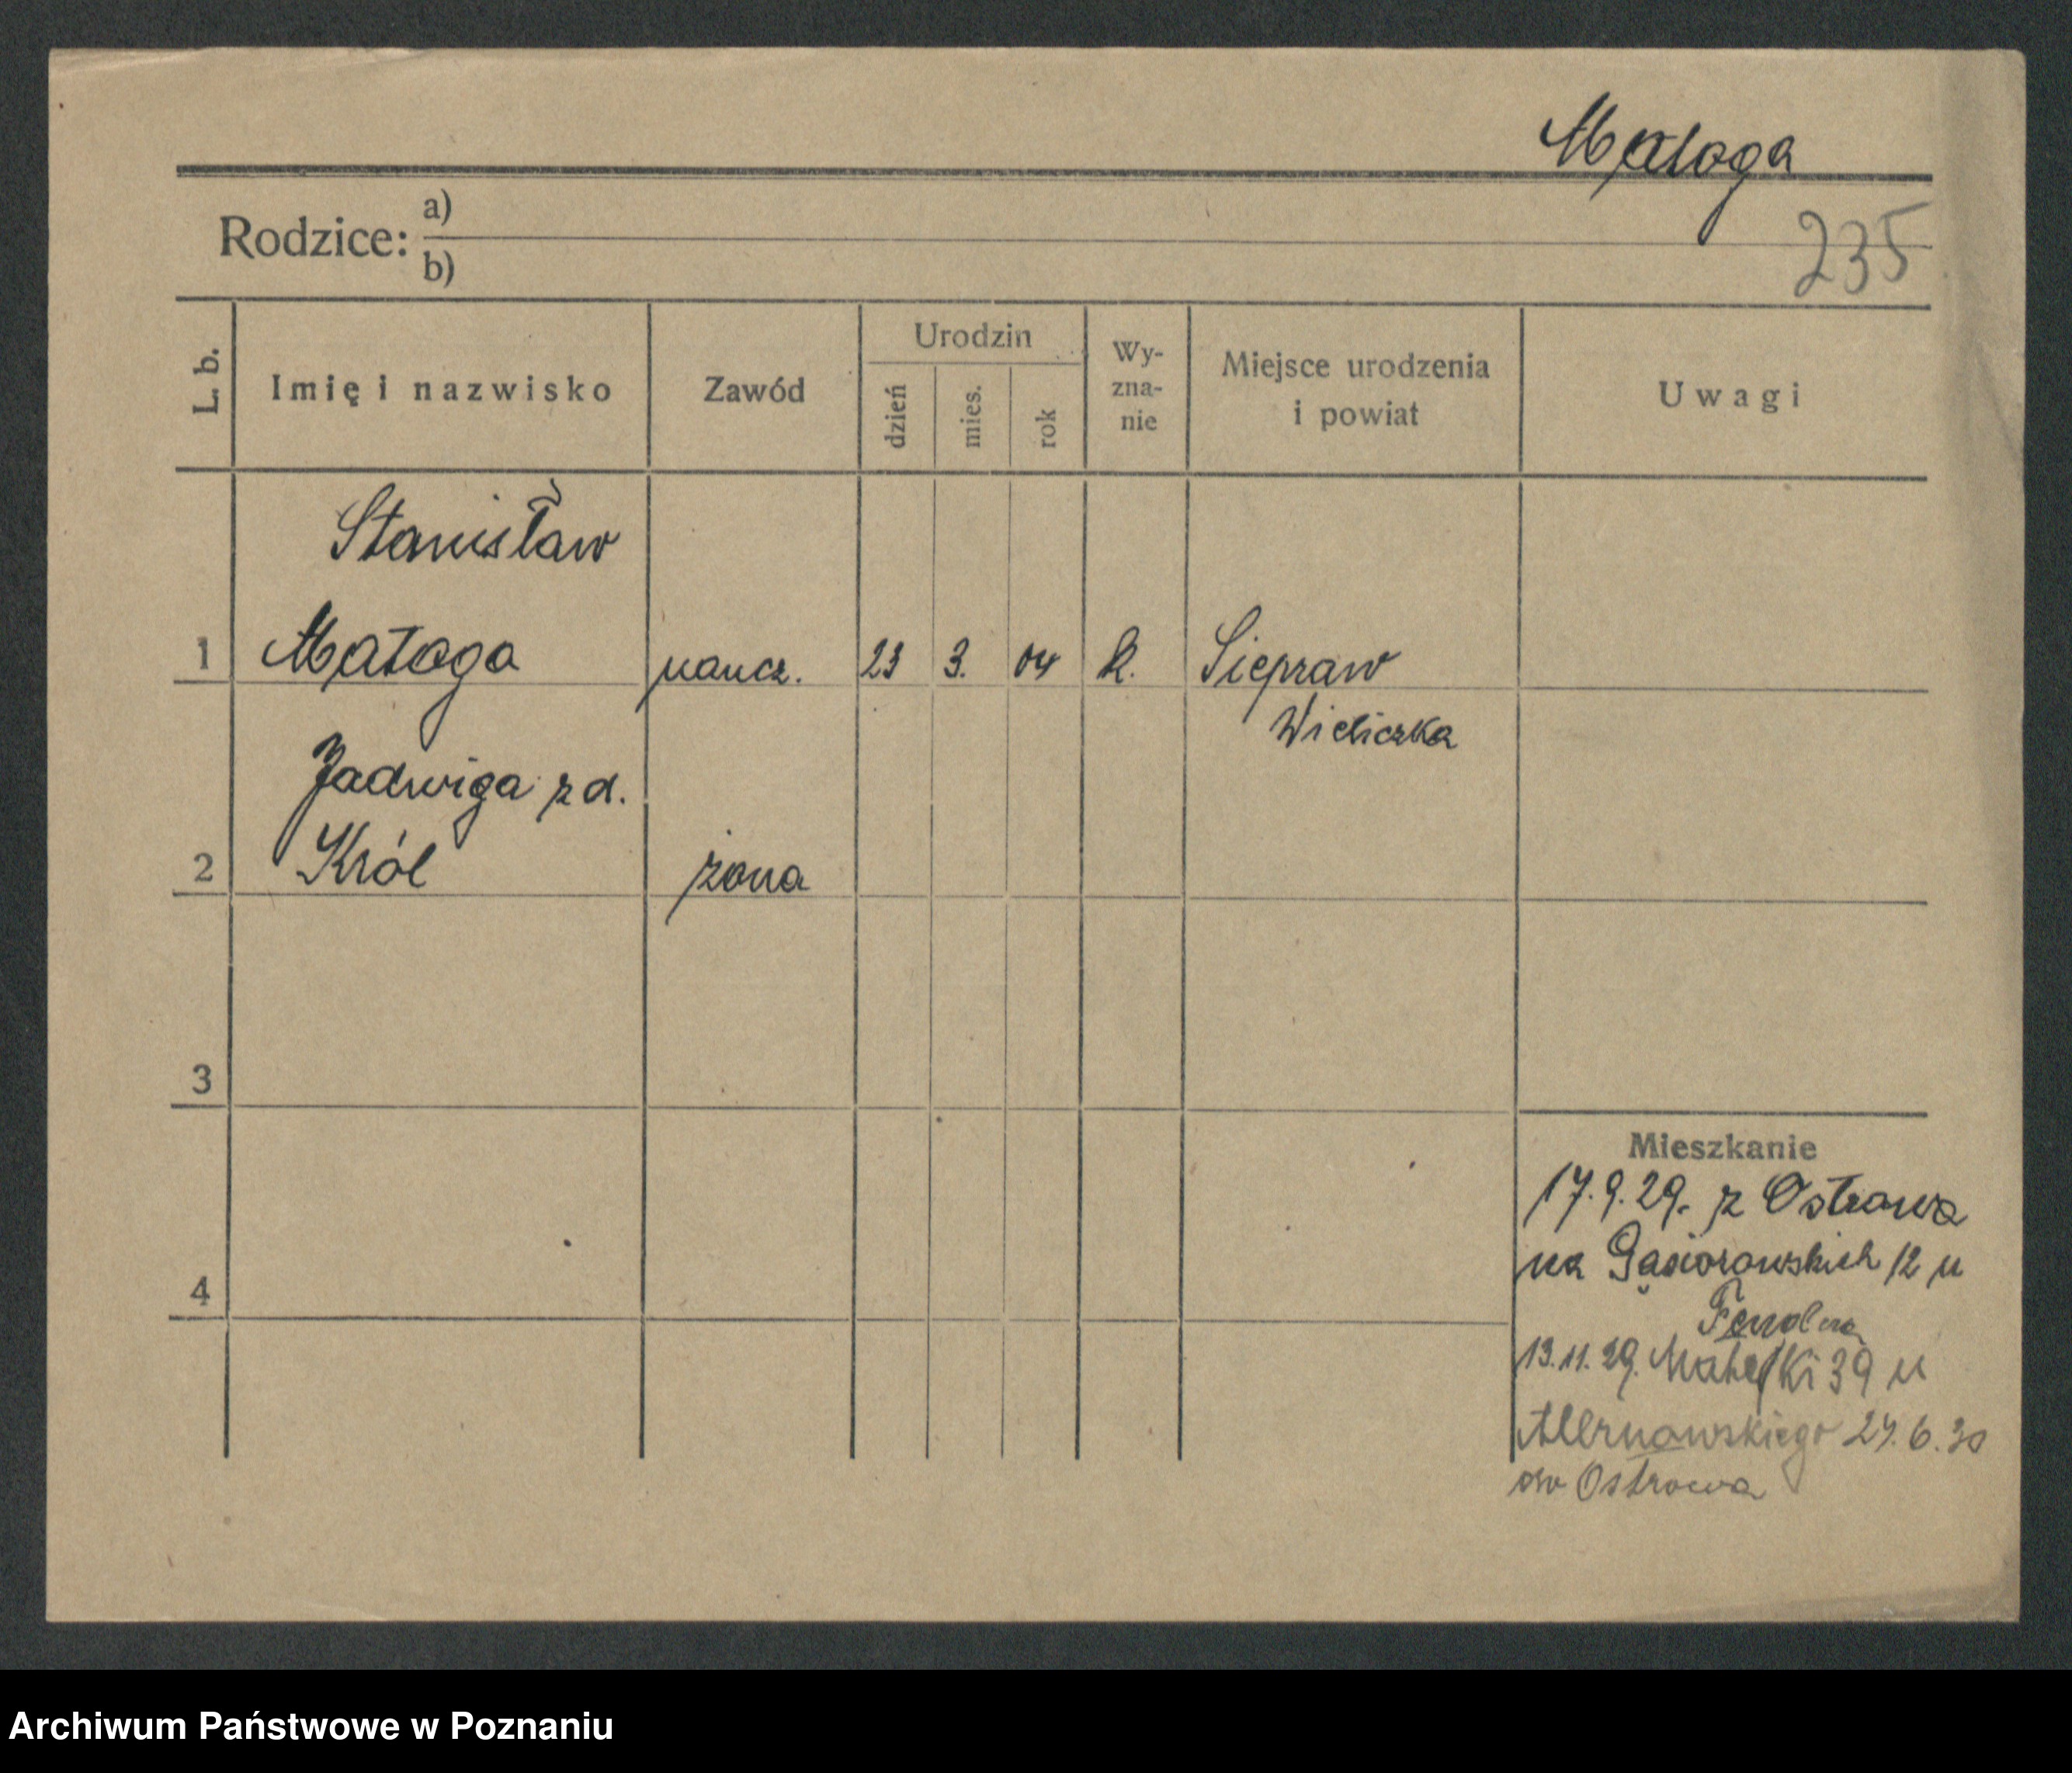 Małoga
Rodzice: a)
b)
235
L. b. Imię i nazwisko Zawód Urodzin dzień mies. rok Wy-zna-nie Miejsce urodzenia i powiat Uwagi
Stanisław
1 Małoga naucz. 23 3. 04 k. Siepraw
Wieliczka
Jadwiga z d.
2 Król żona
3
Mieszkanie
17.9.29. z Ostrowa
na Gąsiorowskich 12 u
4
13.11.29. Matejki 39 u
24.6.30
Ostrowa
Archiwum Państwowe w Poznaniu